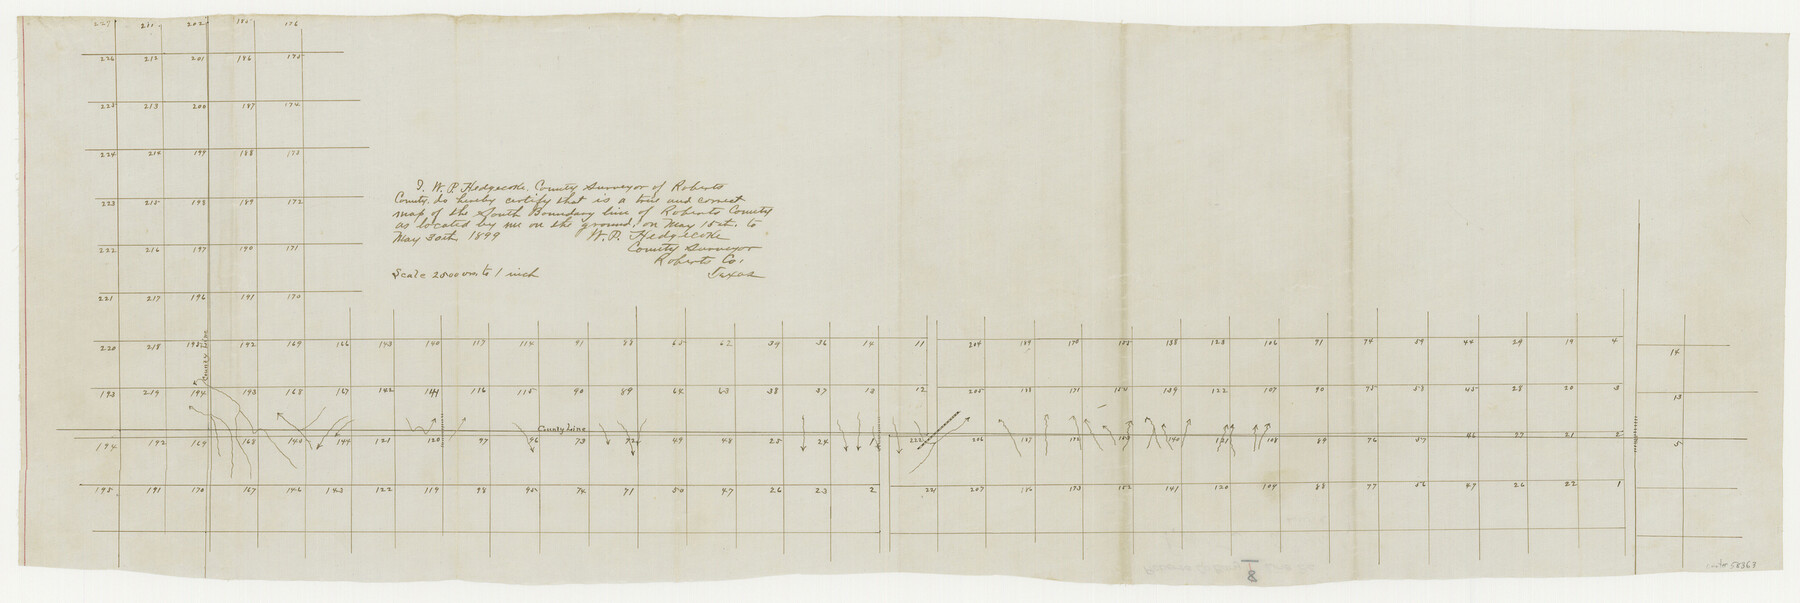 227 211 202 185 176
226 212 201 186 175
225 213 200 187 174
224 214 199 188 173
223 215 198 189 172
222 216 197 190 171
221 217 196 191 170
I, W. P. Hedgecoke, County Surveyor of Roberts
County, do hereby certify that is a true and correct
map of the South Boundary line of Roberts County
as located by me on the ground, on May 15th, to
May 30th, 1899 W. P. Hedgecoke
County Surveyor
Roberts Co,
Texas
Scale 2000 vrs to 1 inch
County Line
220 218 195 192 169 166 143 140 117 114 91 88 65 62 39 36 14 11 204 189 170 155 138 123 106 91 74 59 44 29 19 4
14
193 219 194 193 168 167 142 141 116 115 90 89 64 63 38 37 13 12 205 188 171 154 139 122 107 90 75 58 45 28 20 3
13
County Line
194 192 169 168 140 144 121 120 97 96 73 72 49 48 25 24 1 222 206 187 172 153 140 121 108 89 76 57 46 27 21 2
5
195 191 170 167 146 143 122 119 98 95 74 71 50 47 26 23 2 221 207 186 173 152 141 120 109 88 77 56 47 26 22 1
8
58363